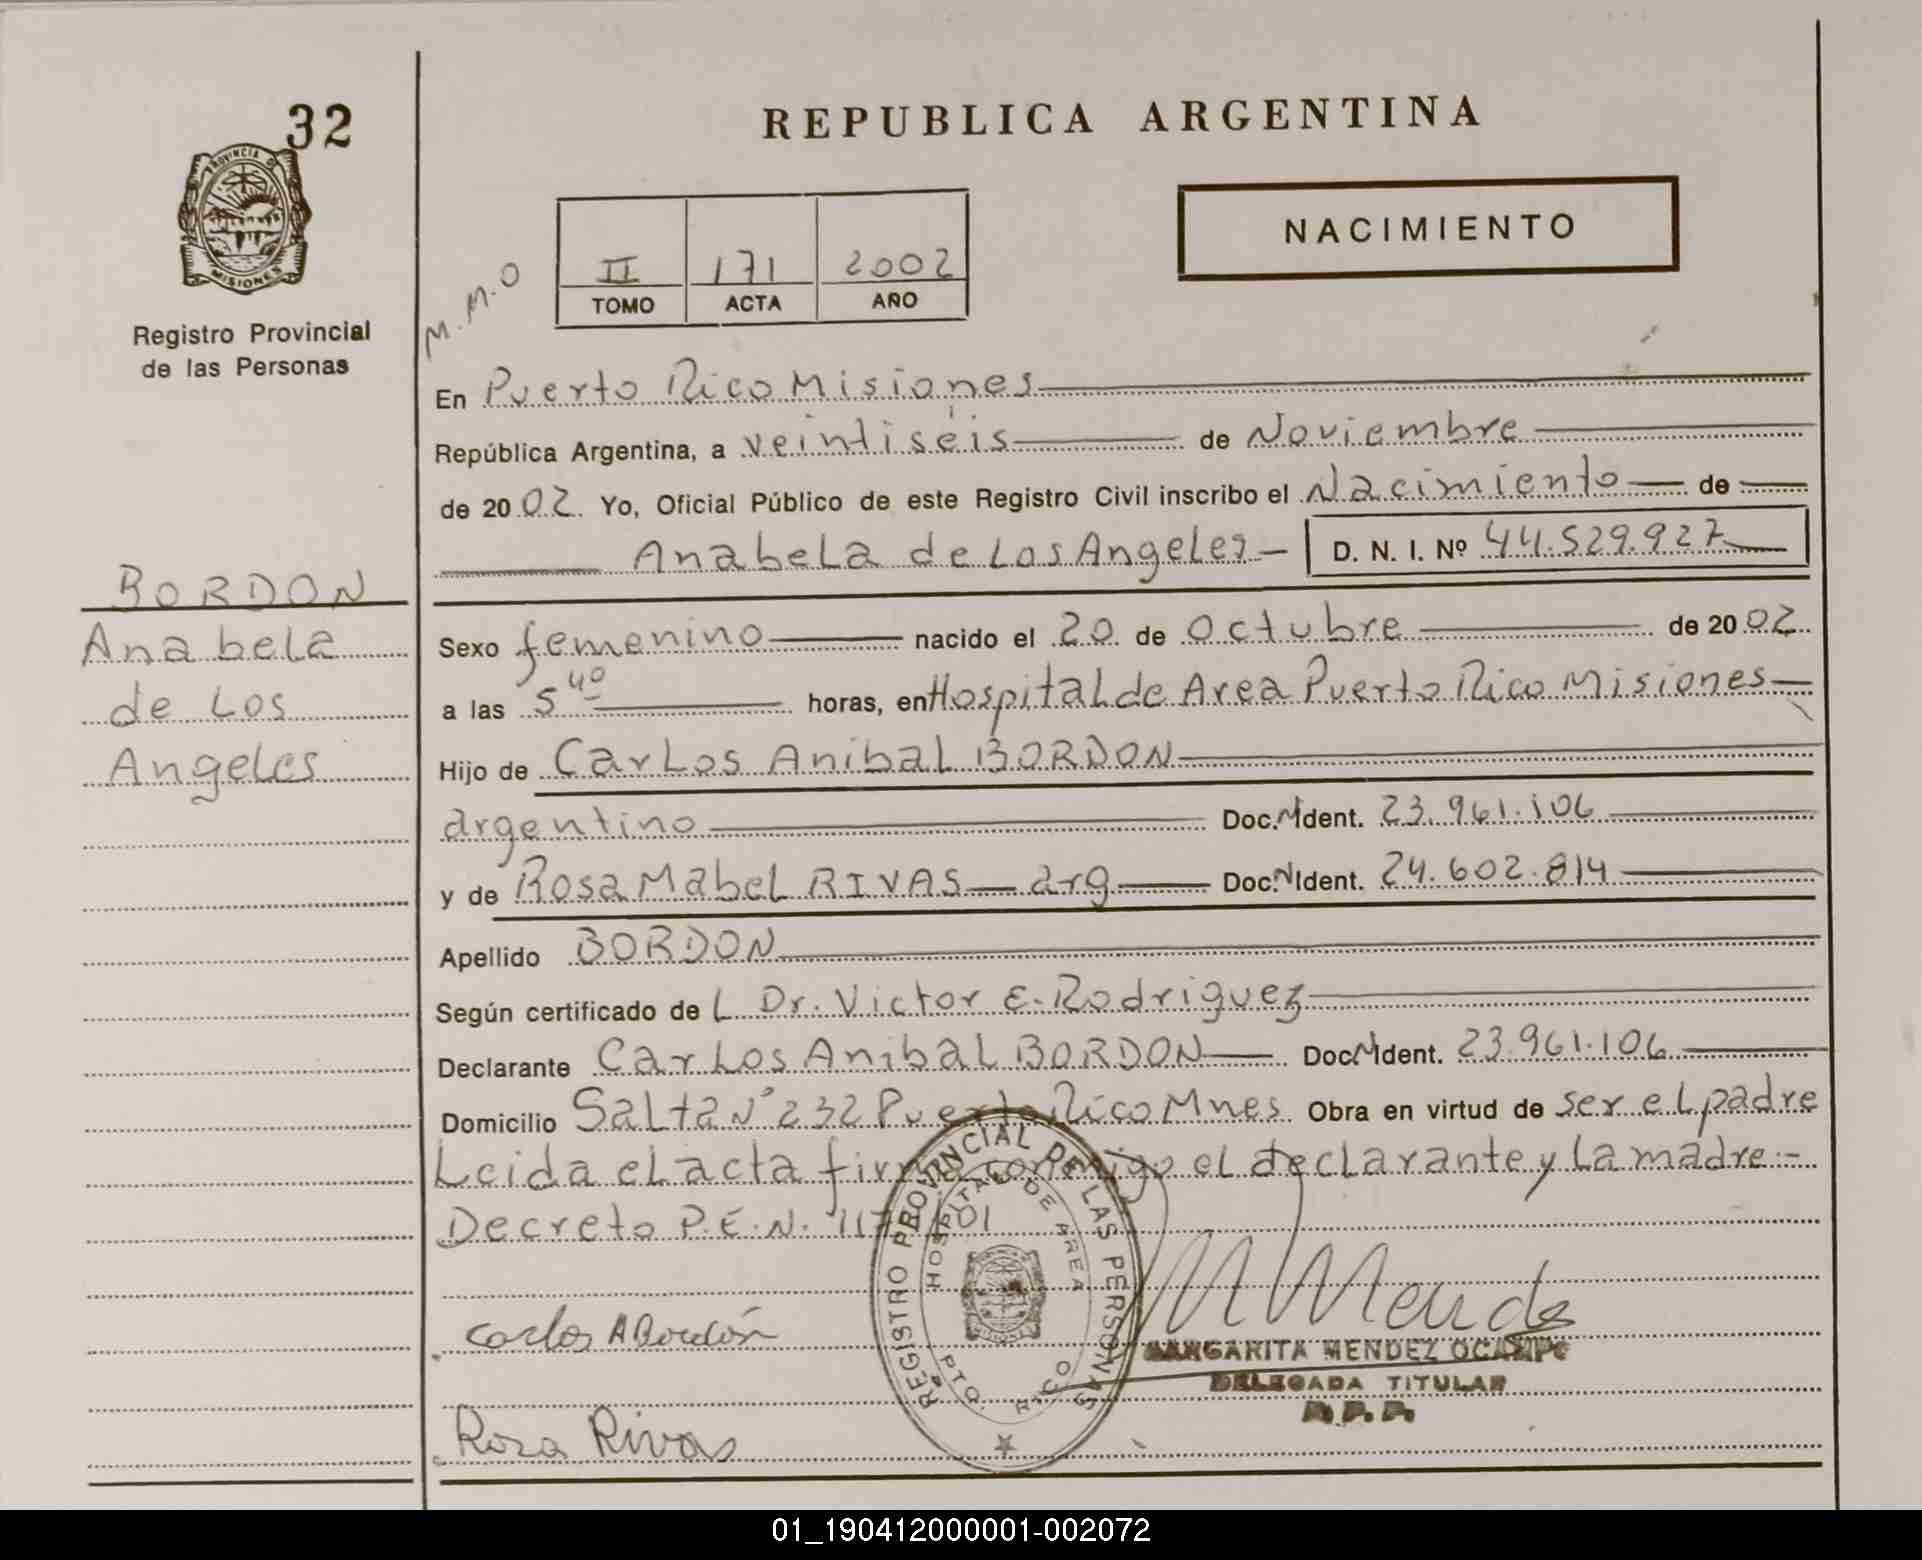 32
PROVINCIA DE
MISIONES
Registro Provincial
de las Personas
REPUBLICA ARGENTINA
NACIMIENTO
II 171 2002
TOMO ACTA AÑO
M.M.O
En Puerto Rico Misiones
República Argentina, a veintiséis de Noviembre
de 2002 Yo, Oficial Público de este Registro Civil inscribo el Nacimiento de
Anabela de Los Angeles D. N. I. Nº 44.529.927
BORDON
Anabela
de Los
Angeles
Sexo femenino nacido el 20 de Octubre de 2002
a las 5 40 horas, en Hospital de Area Puerto Rico Misiones
Hijo de Carlos Anibal BORDON
argentino Doc. N Ident. 23.961.106
y de Rosa Mabel RIVAS arg Doc. N Ident. 24.602.814
Apellido BORDON
Según certificado de L Dr. Victor E. Rodriguez
Declarante Carlos Anibal BORDON Doc. N Ident. 23.961.106
Domicilio Salta N° 232 Puerto Rico Mnes Obra en virtud de ser el padre
Leida el acta firma conmigo el declarante y la madre.-
Decreto P.E.N.
REGISTRO PROVINCIAL DE LAS PERSONAS
HOSPITAL DE AREA
PTO. RICO
Carlos A Bordón
M Mendez
MARGARITA MENDEZ OCAMPO
DELEGADA TITULAR
Rosa Rivas
01_190412000001-002072